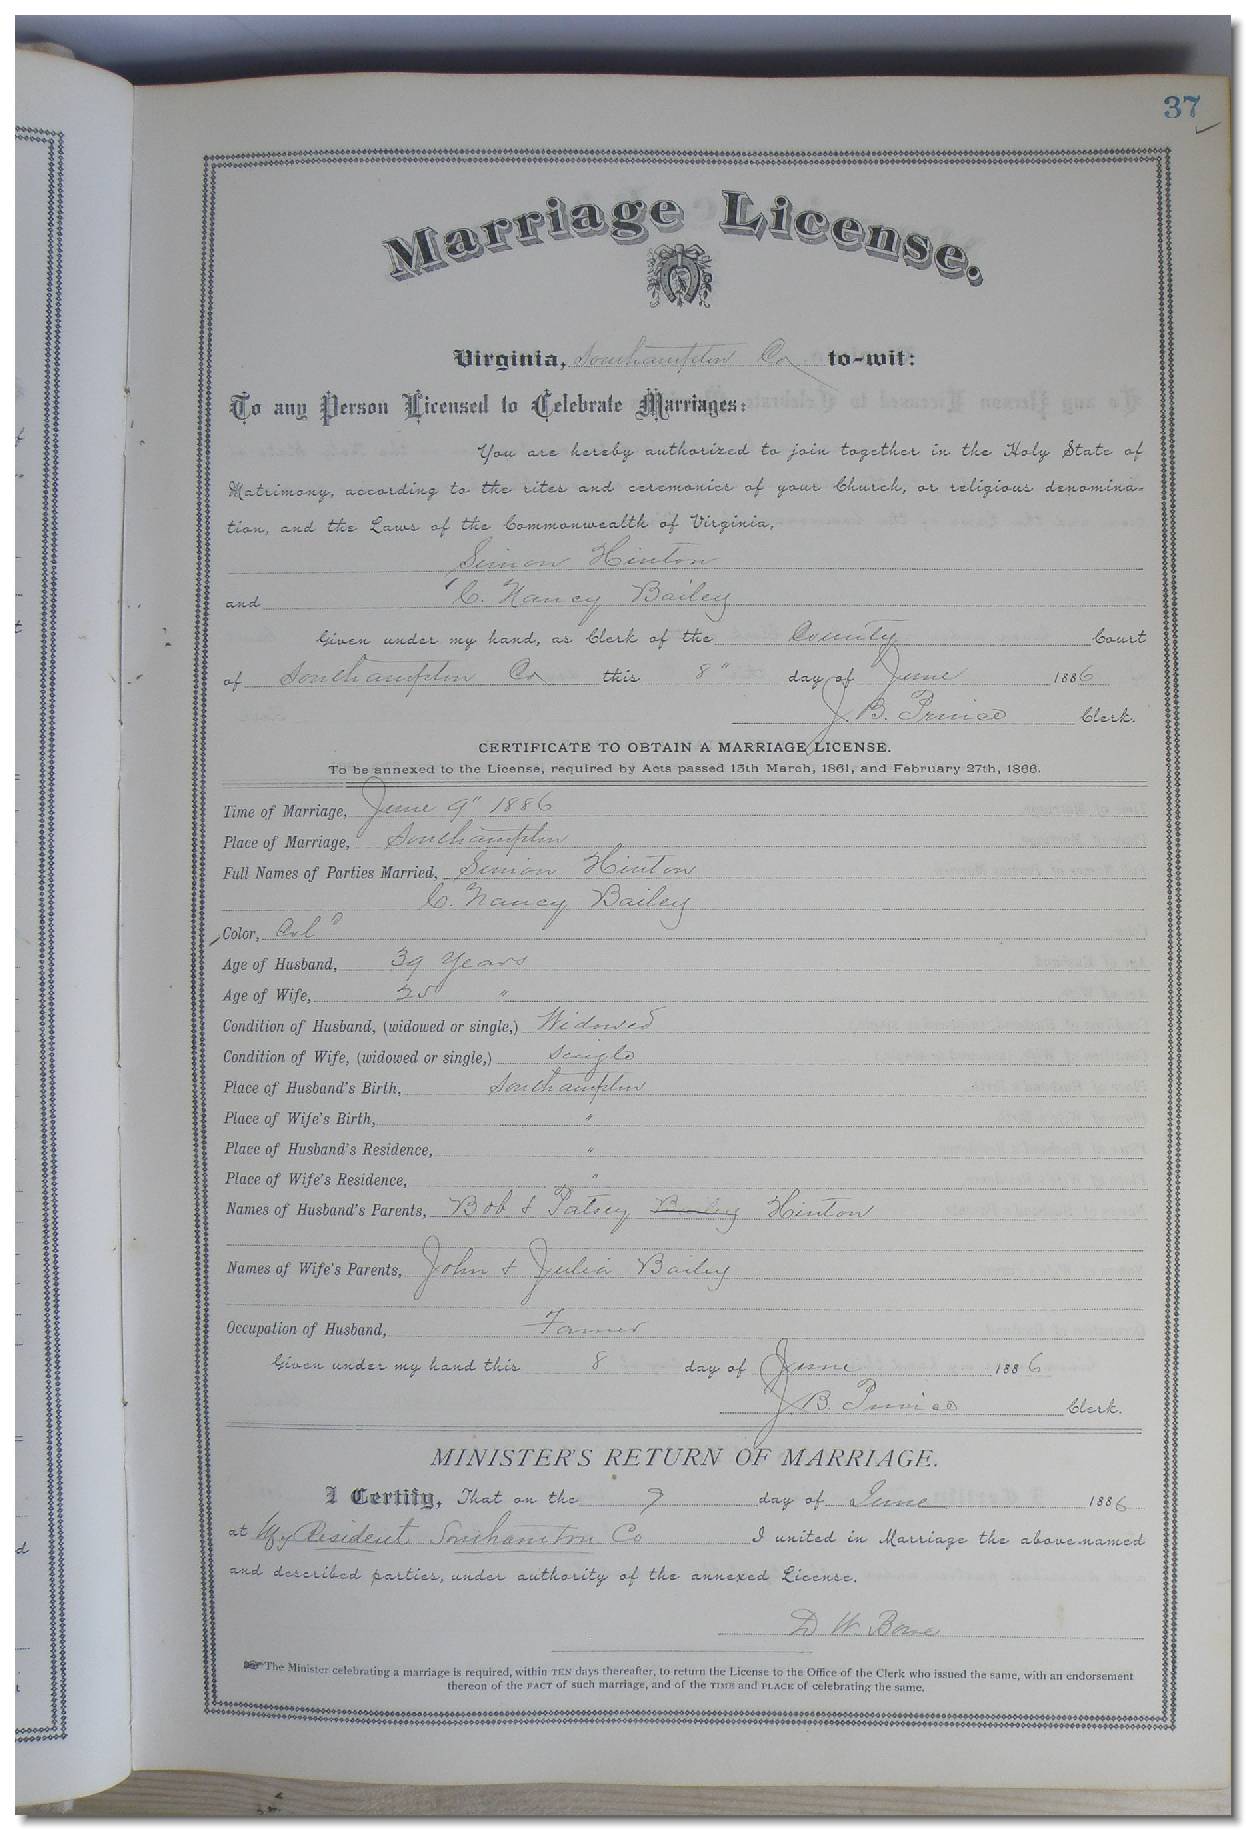 37
Marriage License.
Virginia, Southampton Co to-wit:
To any Person Licensed to Celebrate Marriages:
You are hereby authorized to join together in the Holy State of
Matrimony, according to the rites and ceremonies of your Church, or religious denomina-
tion, and the Laws of the Commonwealth of Virginia,
Simon Hinton
and C. Nancy Bailey
Given under my hand, as Clerk of the County Court
of Southampton Co this 8" day of June 1886
J. B. Prince Clerk.
CERTIFICATE TO OBTAIN A MARRIAGE LICENSE.
To be annexed to the License, required by Acts passed 15th March, 1861, and February 27th, 1866.
Time of Marriage, June 9" 1886
Place of Marriage, Southampton
Full Names of Parties Married, Simon Hinton
C. Nancy Bailey
Color, Col d
Age of Husband, 39 Years
Age of Wife, 25 "
Condition of Husband, (widowed or single,) Widowed
Condition of Wife, (widowed or single,) Single
Place of Husband's Birth, Southampton
Place of Wife's Birth, "
Place of Husband's Residence, "
Place of Wife's Residence, "
Names of Husband's Parents, Bob & Patsey Bailey Hinton
Names of Wife's Parents, John & Julia Bailey
Occupation of Husband, Farmer
Given under my hand this 8 day of June 1886
J. B. Prince Clerk.
MINISTER'S RETURN OF MARRIAGE.
I Certify, That on the 9 day of June 1886
at My Resident Southamton Co I united in Marriage the above-named
and described parties, under authority of the annexed License.
D W. Bone
The Minister celebrating a marriage is required, within TEN days thereafter, to return the License to the Office of the Clerk who issued the same, with an endorsement
thereon of the FACT of such marriage, and of the TIME and PLACE of celebrating the same.